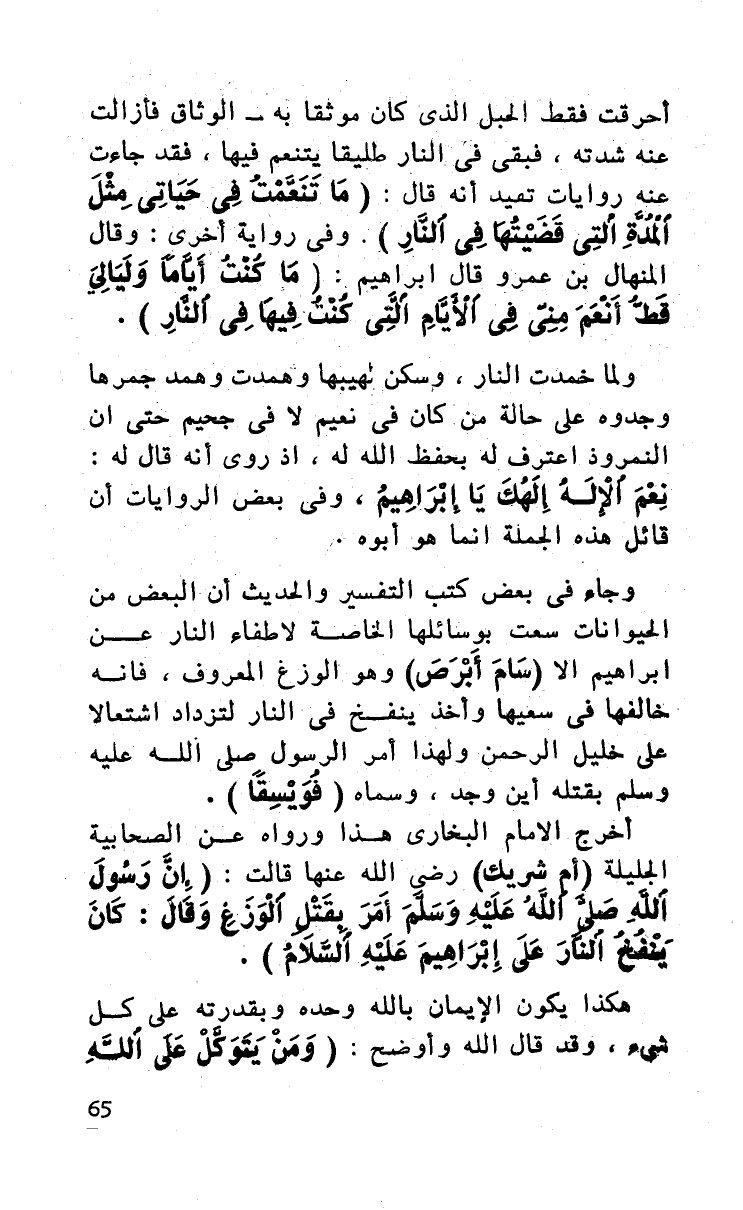 أحرقت فقط الحبل الذى كان موثقا به ــ الوثاق فأزالت
عنه شدته ، فبقى فى النار طليقا يتنعم فيها ، فقد جاءت
عنه روايات تفيد أنه قال : ( مَا تَنَعَّمْتُ فِي حَيَاتِي مِثْلَ
ٱلْمُدَّةِ ٱلَّتِي قَضَيْتُهَا فِي ٱلنَّارِ ) . وفى رواية أخرى : وقال
المنهال بن عمرو قال ابراهيم : ( مَا كُنْتُ أَيَّاماً وَلَيَالِيَ
قَطُّ أَنْعَمَ مِنِّي فِي ٱلْأَيَّامِ ٱلَّتِي كُنْتُ فِيهَا فِي ٱلنَّارِ ) .
ولما خمدت النار ، وسكن لهيبها وهمدت وهمد جمرها
وجدوه على حالة من كان فى نعيم لا فى جحيم حتى ان
النمروذ اعترف له بحفظ الله له ، اذ روى أنه قال له :
نِعْمَ ٱلْإِلَــهُ إِلَهُكَ يَا إِبْرَاهِيمُ ، وفى بعض الروايات أن
قائل هذه الجملة انما هو أبوه .
وجاء فى بعض كتب التفسير والحديث أن البعض من
الحيوانات سعت بوسائلها الخاصــة لاطفاء النار عــــن
ابراهيم الا (سَامَ أَبْرَصَ) وهو الوزغ المعروف ، فانــه
خالفها فى سعيها وأخذ ينفــخ فى النار لتزداد اشتعالا
على خليل الرحمن ولهذا أمر الرسول صلى اللــه عليه
وسلم بقتله أين وجد ، وسماه ( فُوَيْسِقًا ) .
أخرج الامام البخارى هــذا ورواه عــن الصحابية
الجليلة (أم شريك) رضي الله عنها قالت : ( إِنَّ رَسُولَ
ٱللَّهِ صَلَّى ٱللَّهُ عَلَيْهِ وَسَلَّمَ أَمَرَ بِقَتْلِ ٱلْوَزَغِ وَقَالَ : كَانَ
يَنْفُخُ ٱلنَّارَ عَلَى إِبْرَاهِيمَ عَلَيْهِ ٱلسَّلَامُ ) .
هكذا يكون الإيمان بالله وحده وبقدرته على كــل
شيء ، وقد قال الله وأوضح : ( وَمَنْ يَتَوَكَّلْ عَلَى ٱللَّــهِ
65